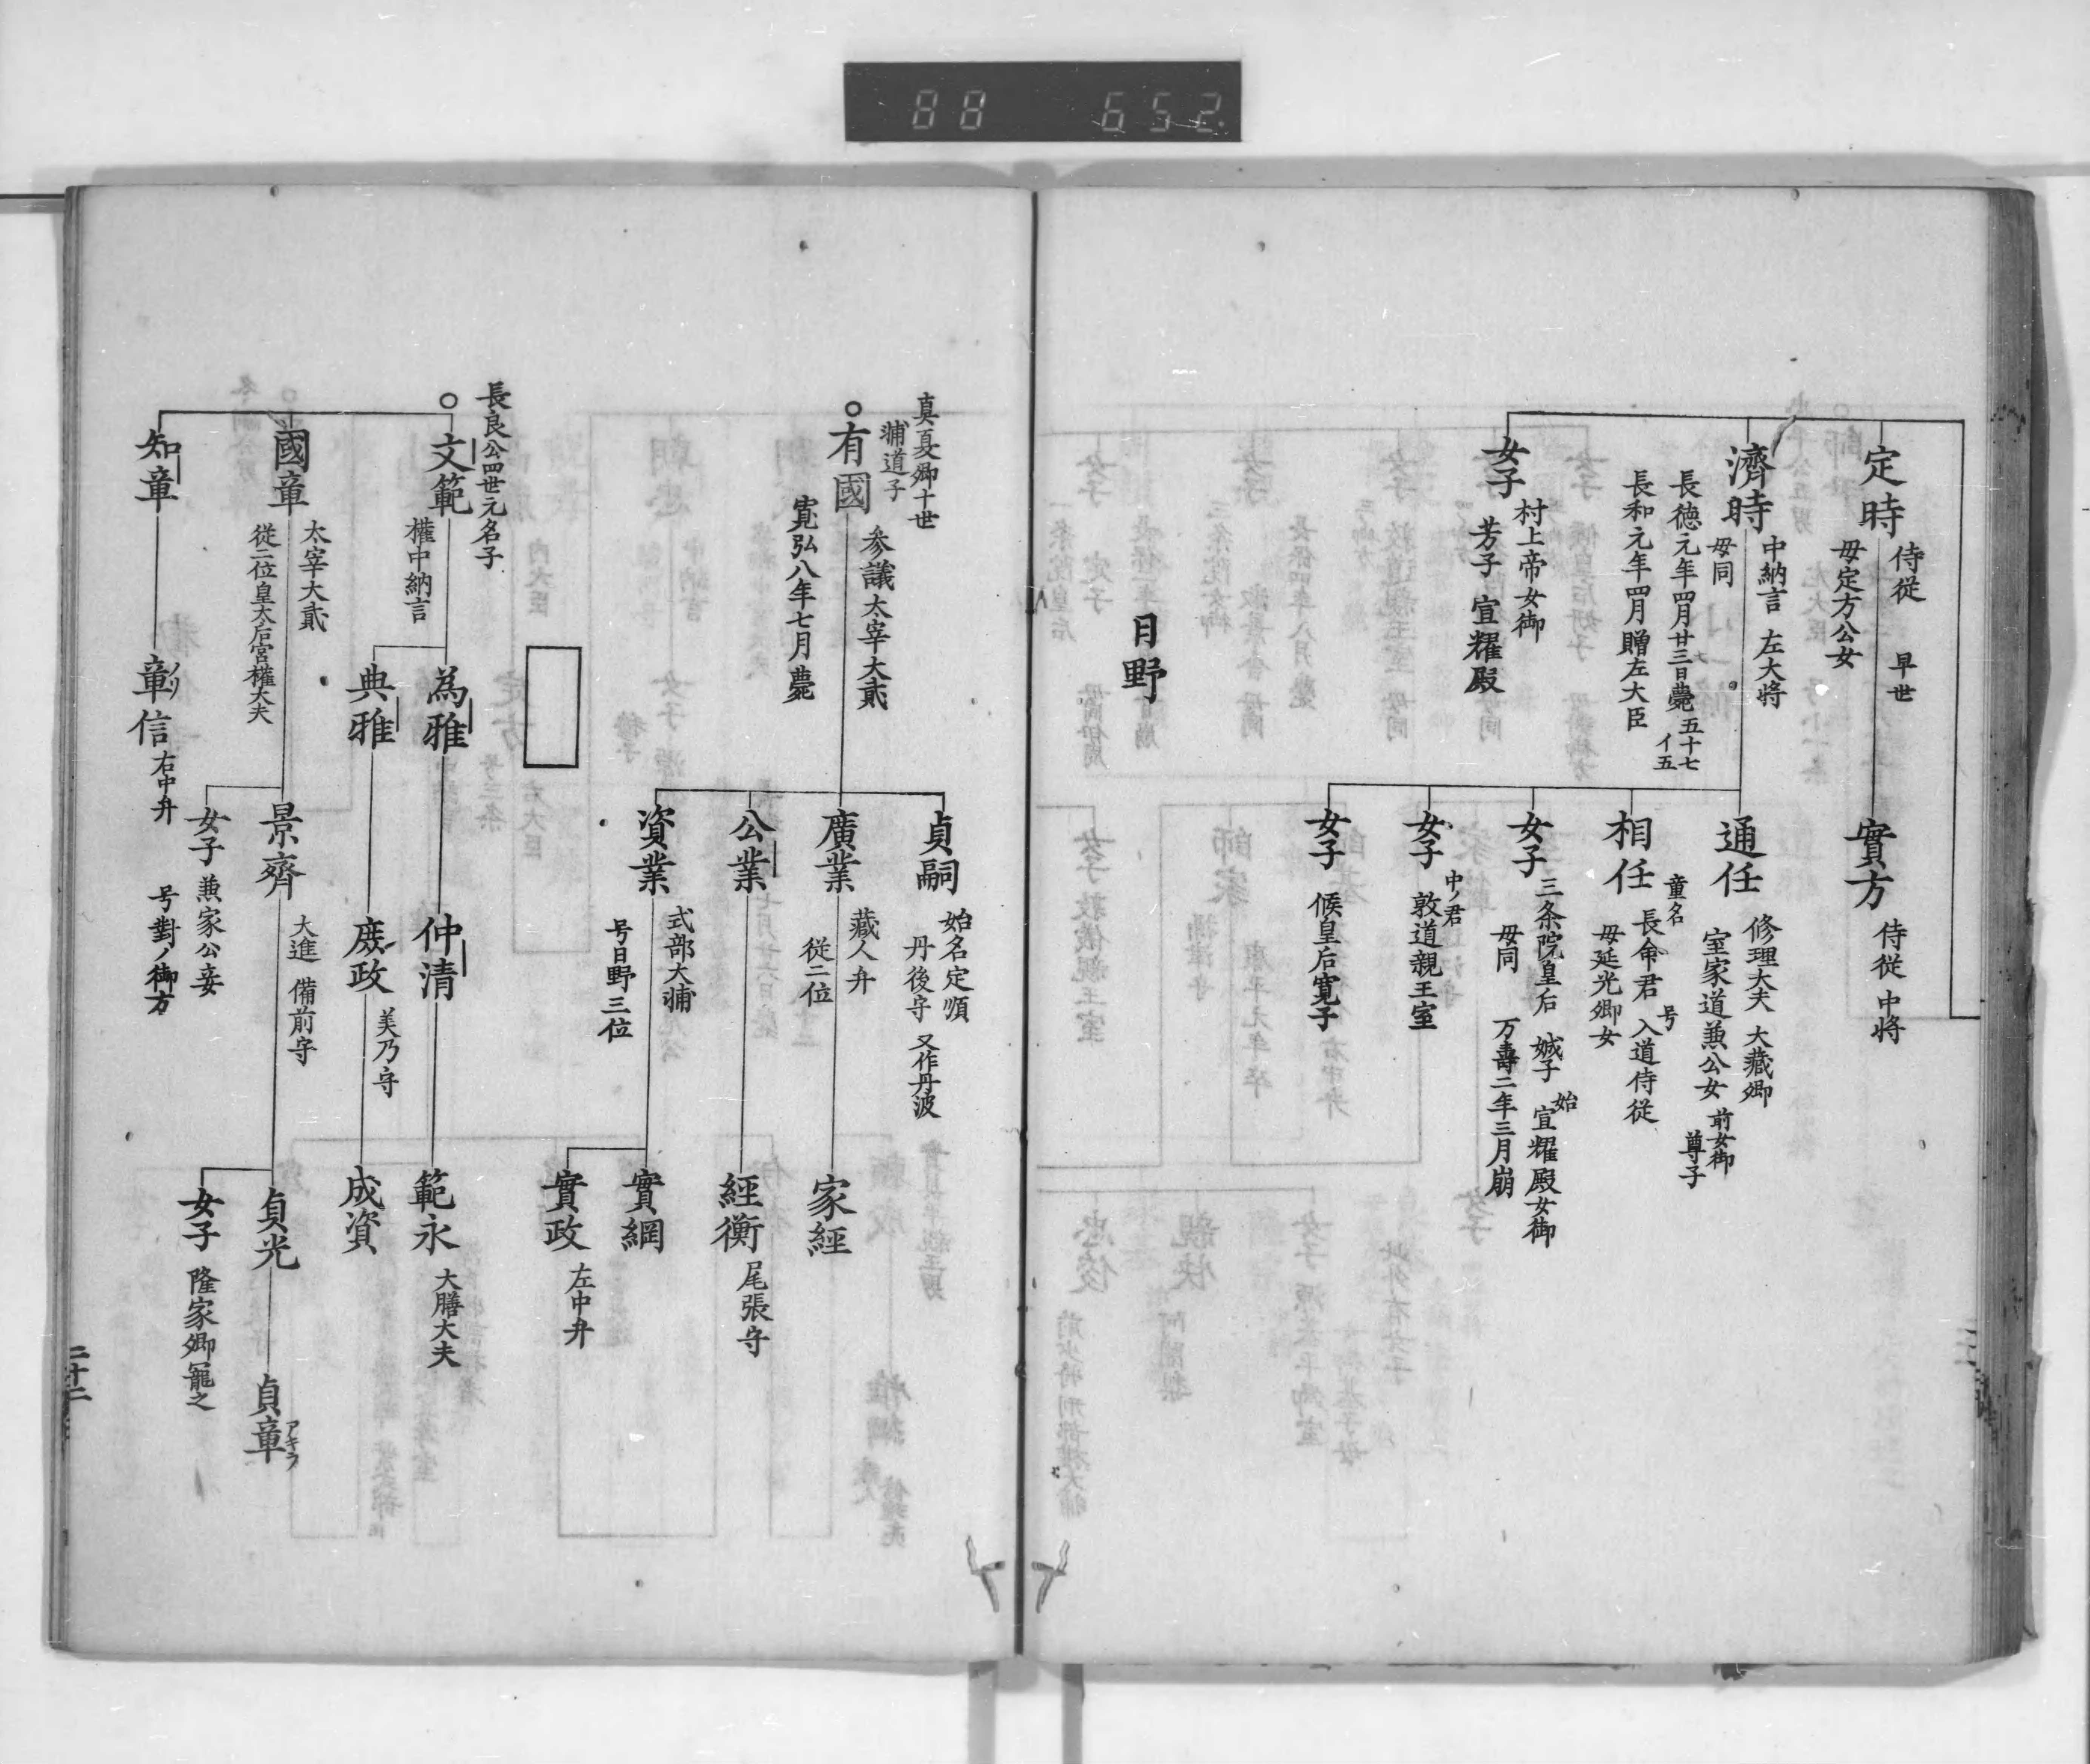 88 652
定時
侍従 早世
母定方公女
實方
侍従 中将
濟時
中納言 左大将
母同
長徳元年四月廿三日薨 五十七
イ五
長和元年四月贈左大臣
通任
修理大夫 大藏卿
室家道兼公女 前女御
尊子
相任
童名
長命君 号入道侍従
母延光卿女
女子
三条院皇后 娍子 始宣耀殿女御
母同 万壽二年三月崩
女子
中ノ君
敦道親王室
女子
候皇后寛子
女子
村上帝女御
芳子 宣耀殿
日野
真夏卿十世
輔道子
有國
参議太宰大貳
寛弘八年七月薨
貞嗣
始名定順
丹後守 又作丹波
廣業
藏人弁
従二位
家經
公業
經衡
尾張守
資業
式部大輔
号日野三位
實綱
實政
左中弁
長良公四世元名子
文範
權中納言
為雅
仲清
範永
大膳大夫
典雅
政
美乃守
成資
國章
太宰大貳
従二位皇太后宮權大夫
景齊
大進 備前守
貞光
貞章
アキラ
女子
隆家卿寵之
女子
兼家公妾
号對ノ御方
知章
章信
ノリ
右中弁
二十二